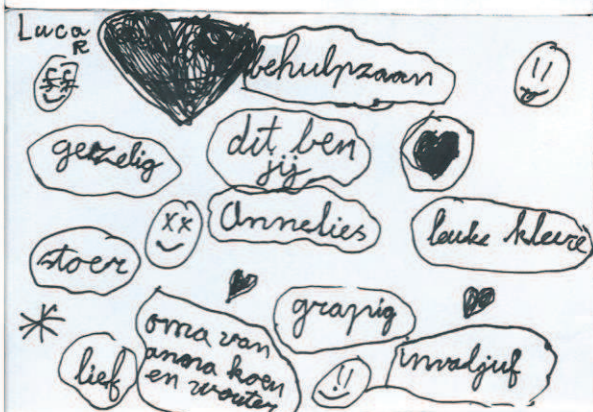 Luca
R
behulpzaan
gezelig
dit ben
jij
Annelies
leuke kleire
stoer
grapig
oma van
anna koen
en wouter
invaljuf
lief